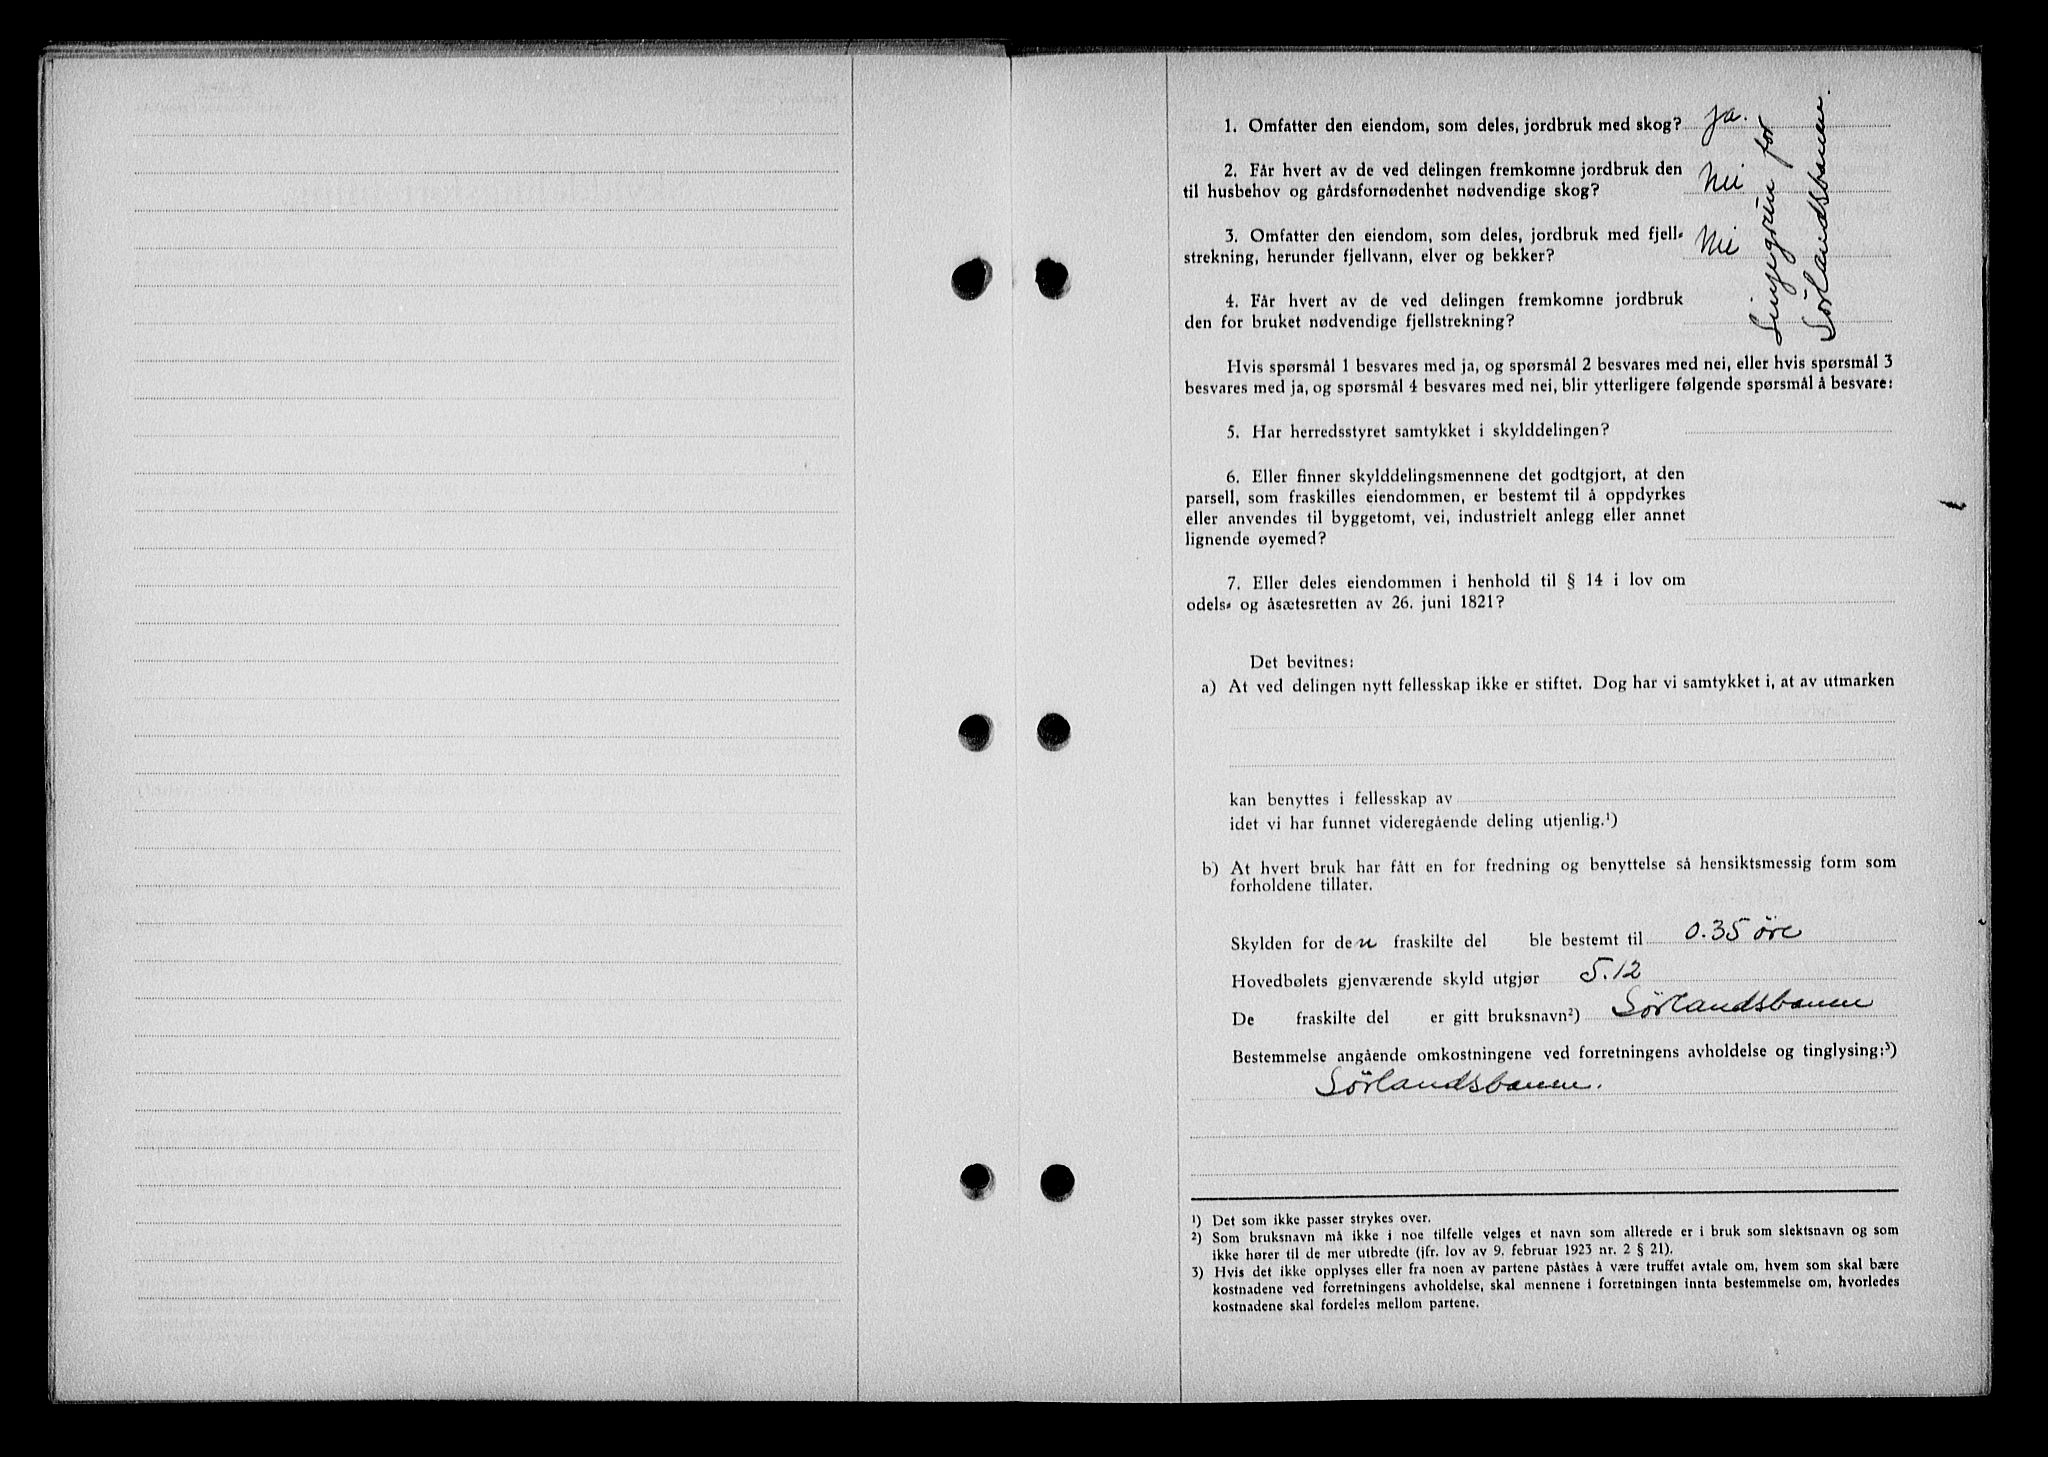 1. Omfatter den eiendom, som deles, jordbruk med skog? ja.
2. Får hvert av de ved delingen fremkomne jordbruk den
til husbehov og gårdsfornødenhet nødvendige skog? Nei
3. Omfatter den eiendom, som deles, jordbruk med fjell-
strekning, herunder fjellvann, elver og bekker? Nei
4. Får hvert av de ved delingen fremkomne jordbruk
den for bruket nødvendige fjellstrekning?
Linjegrunn for
Sørlandsbanen.
Hvis spørsmål 1 besvares med ja, og spørsmål 2 besvares med nei, eller hvis spørsmål 3
besvares med ja, og spørsmål 4 besvares med nei, blir ytterligere følgende spørsmål å besvare:
5. Har herredsstyret samtykket i skylddelingen?
6. Eller finner skylddelingsmennene det godtgjort, at den
parsell, som fraskilles eiendommen, er bestemt til å oppdyrkes
eller anvendes til byggetomt, vei, industrielt anlegg eller annet
lignende øyemed?
7. Eller deles eiendommen i henhold til § 14 i lov om
odels- og åsætesretten av 26. juni 1821?
Det bevitnes:
a) At ved delingen nytt fellesskap ikke er stiftet. Dog har vi samtykket i, at av utmarken
kan benyttes i fellesskap av
idet vi har funnet videregående deling utjenlig.¹)
b) At hvert bruk har fått en for fredning og benyttelse så hensiktsmessig form som
forholdene tillater.
Skylden for den fraskilte del ble bestemt til 0.35 øre
Hovedbølets gjenværende skyld utgjør 5.12
De fraskilte del er gitt bruksnavn²) Sørlandsbanen
Bestemmelse angående omkostningene ved forretningens avholdelse og tinglysing:³)
Sørlandsbanen.
¹) Det som ikke passer strykes over.
²) Som bruksnavn må ikke i noe tilfelle velges et navn som allerede er i bruk som slektsnavn og som
ikke hører til de mer utbredte (jfr. lov av 9. februar 1923 nr. 2 § 21).
3) Hvis det ikke opplyses eller fra noen av partene påståes å være truffet avtale om, hvem som skal bære
kostnadene ved forretningens avholdelse, skal mennene i forretningen innta bestemmelse om, hvorledes
kostnadene skal fordeles mellom partene.